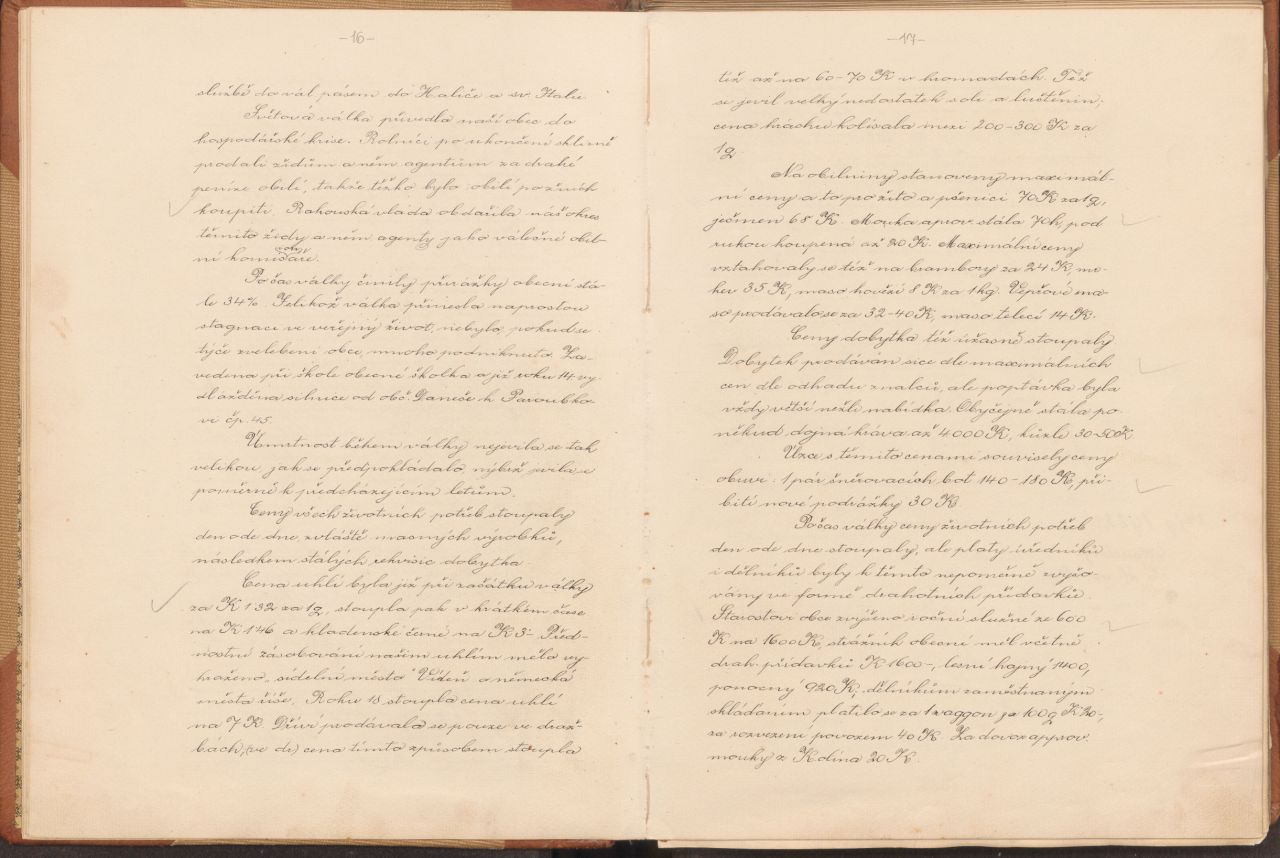 -16-
službě do vál. pásem do Haliče a sv. Italie.
Světová válka přivedla naši obec do
hospodářské krise. Rolníci po ukončení sklizně
prodali židům a něm. agentům za drahé
peníze obilí, takže těžko bylo obilí po žních
koupiti. Rakouská vláda obdařila náš okres
těmito židy a něm. agenty jako válečné obil-
ní komisaře.
Počas války činily přirážky obecní stá-
le 34%. Jelikož válka přinesla naprostou
stagnaci ve veřejný život, nebylo, pokud se
týče zvelebení obce, mnoho podniknuto. Za-
vedena při škole obecné školka a již roku 14 vy-
dlážděna silnice od obč. Daneše k Paroubko-
vi čp. 45.
Úmrtnost během války nejevila se tak
velikou, jak se předpokládalo, nýbrž jevila se
poměrně k předcházejícím letům.
Ceny všech životních potřeb stoupaly
den ode dne, zvláště masných výrobků,
následkem stálých rekvisic dobytka.
Cena uhlí byla již při začátku války
za K 1·32 za 1q, stoupla pak v krátkém čase
na K 1·46 a kladenské černé na K 3·- Před-
nostní zásobování naším uhlím měla vy-
hraženo, sídelní město Vídeň a německá
města říše. Roku 18 stoupla cena uhlí
na 7 K. Dříví prodávalo se pouze ve draž-
bách, (ve dr.) cena tímto způsobem stoupla
-17-
též až na 60-70 K v hromadách. Též
se jevil velký nedostatek sole a luštěnin;
cena hrachu kolísala mezi 200-300 K za
1q.
Na obilniny stanoveny maximál-
ní ceny a to pro žito a pšenici 70 K za 1q,
ječmen 68 K. Mouka aprov. stála 70 h, pod
rukou koupená až 20 K. Maximální ceny
vztahovaly se též na brambory za 24 K, mr-
kev 35 K, maso hovězí 8 K za 1 kg. Vepřové ma-
so prodávalo se za 32-40 K, maso telecí 14 K.
Ceny dobytka též úžasně stoupaly
Dobytek prodáván sice dle maximálních
cen dle odhadu znalců, ale poptávka byla
vždy větší nežli nabídka. Obyčejně stála po-
někud dojná kráva až 4000 K, kůzle 30-50 K.
Úzce s těmito cenami souvisely ceny
obuvi: 1 pár šněrovacích bot 140-180 K, při-
bití nové podrážky 30 K.
Počas války ceny životních potřeb
den ode dne stoupaly, ale platy úředníků
i dělníků byly k těmto nepoměrně zvyšo-
vány ve formě drahotních přídavků.
Starostovi obce zvýšeno roční služné ze 600
K na 1600 K, strážník obecní měl včetně
drah. přídavků K 1600-, lesní hajný 1400,
ponocný 920 K; dělníkům zaměstnaným
skládáním platilo se za 1 waggon po 100 q K 20-,
za rozvezení povozem 40 K. Za dovoz approv.
mouky z Kolína 20 K.